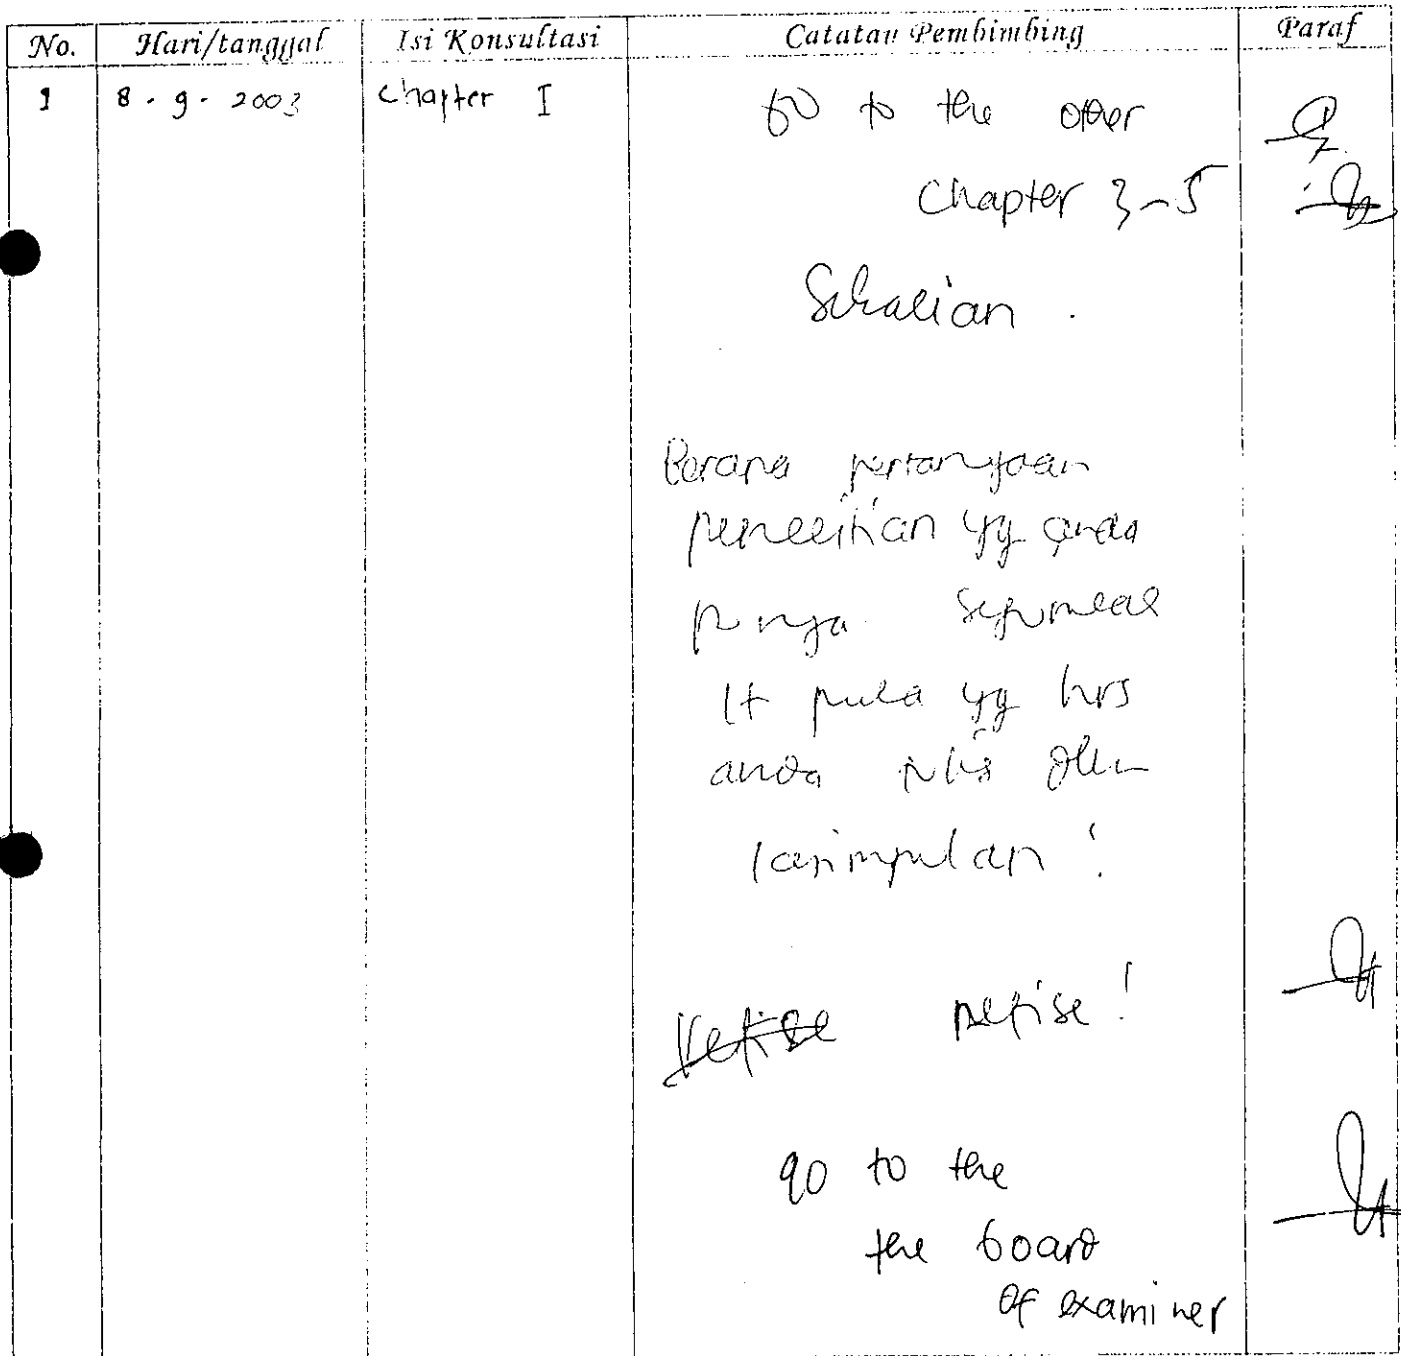 No. Hari/tanggal Isi Konsultasi Catatan Pembimbing Paraf
1 8 - 9 - 2003 Chapter I go to the other
Chapter 3-5
Sekalian .
Berapa pertanyaan
penelitian yg anda
punya sejumlah
it pula yg hrs
anda tulis dlm
kesimpulan !
revise !
go to the
the board
of examiner